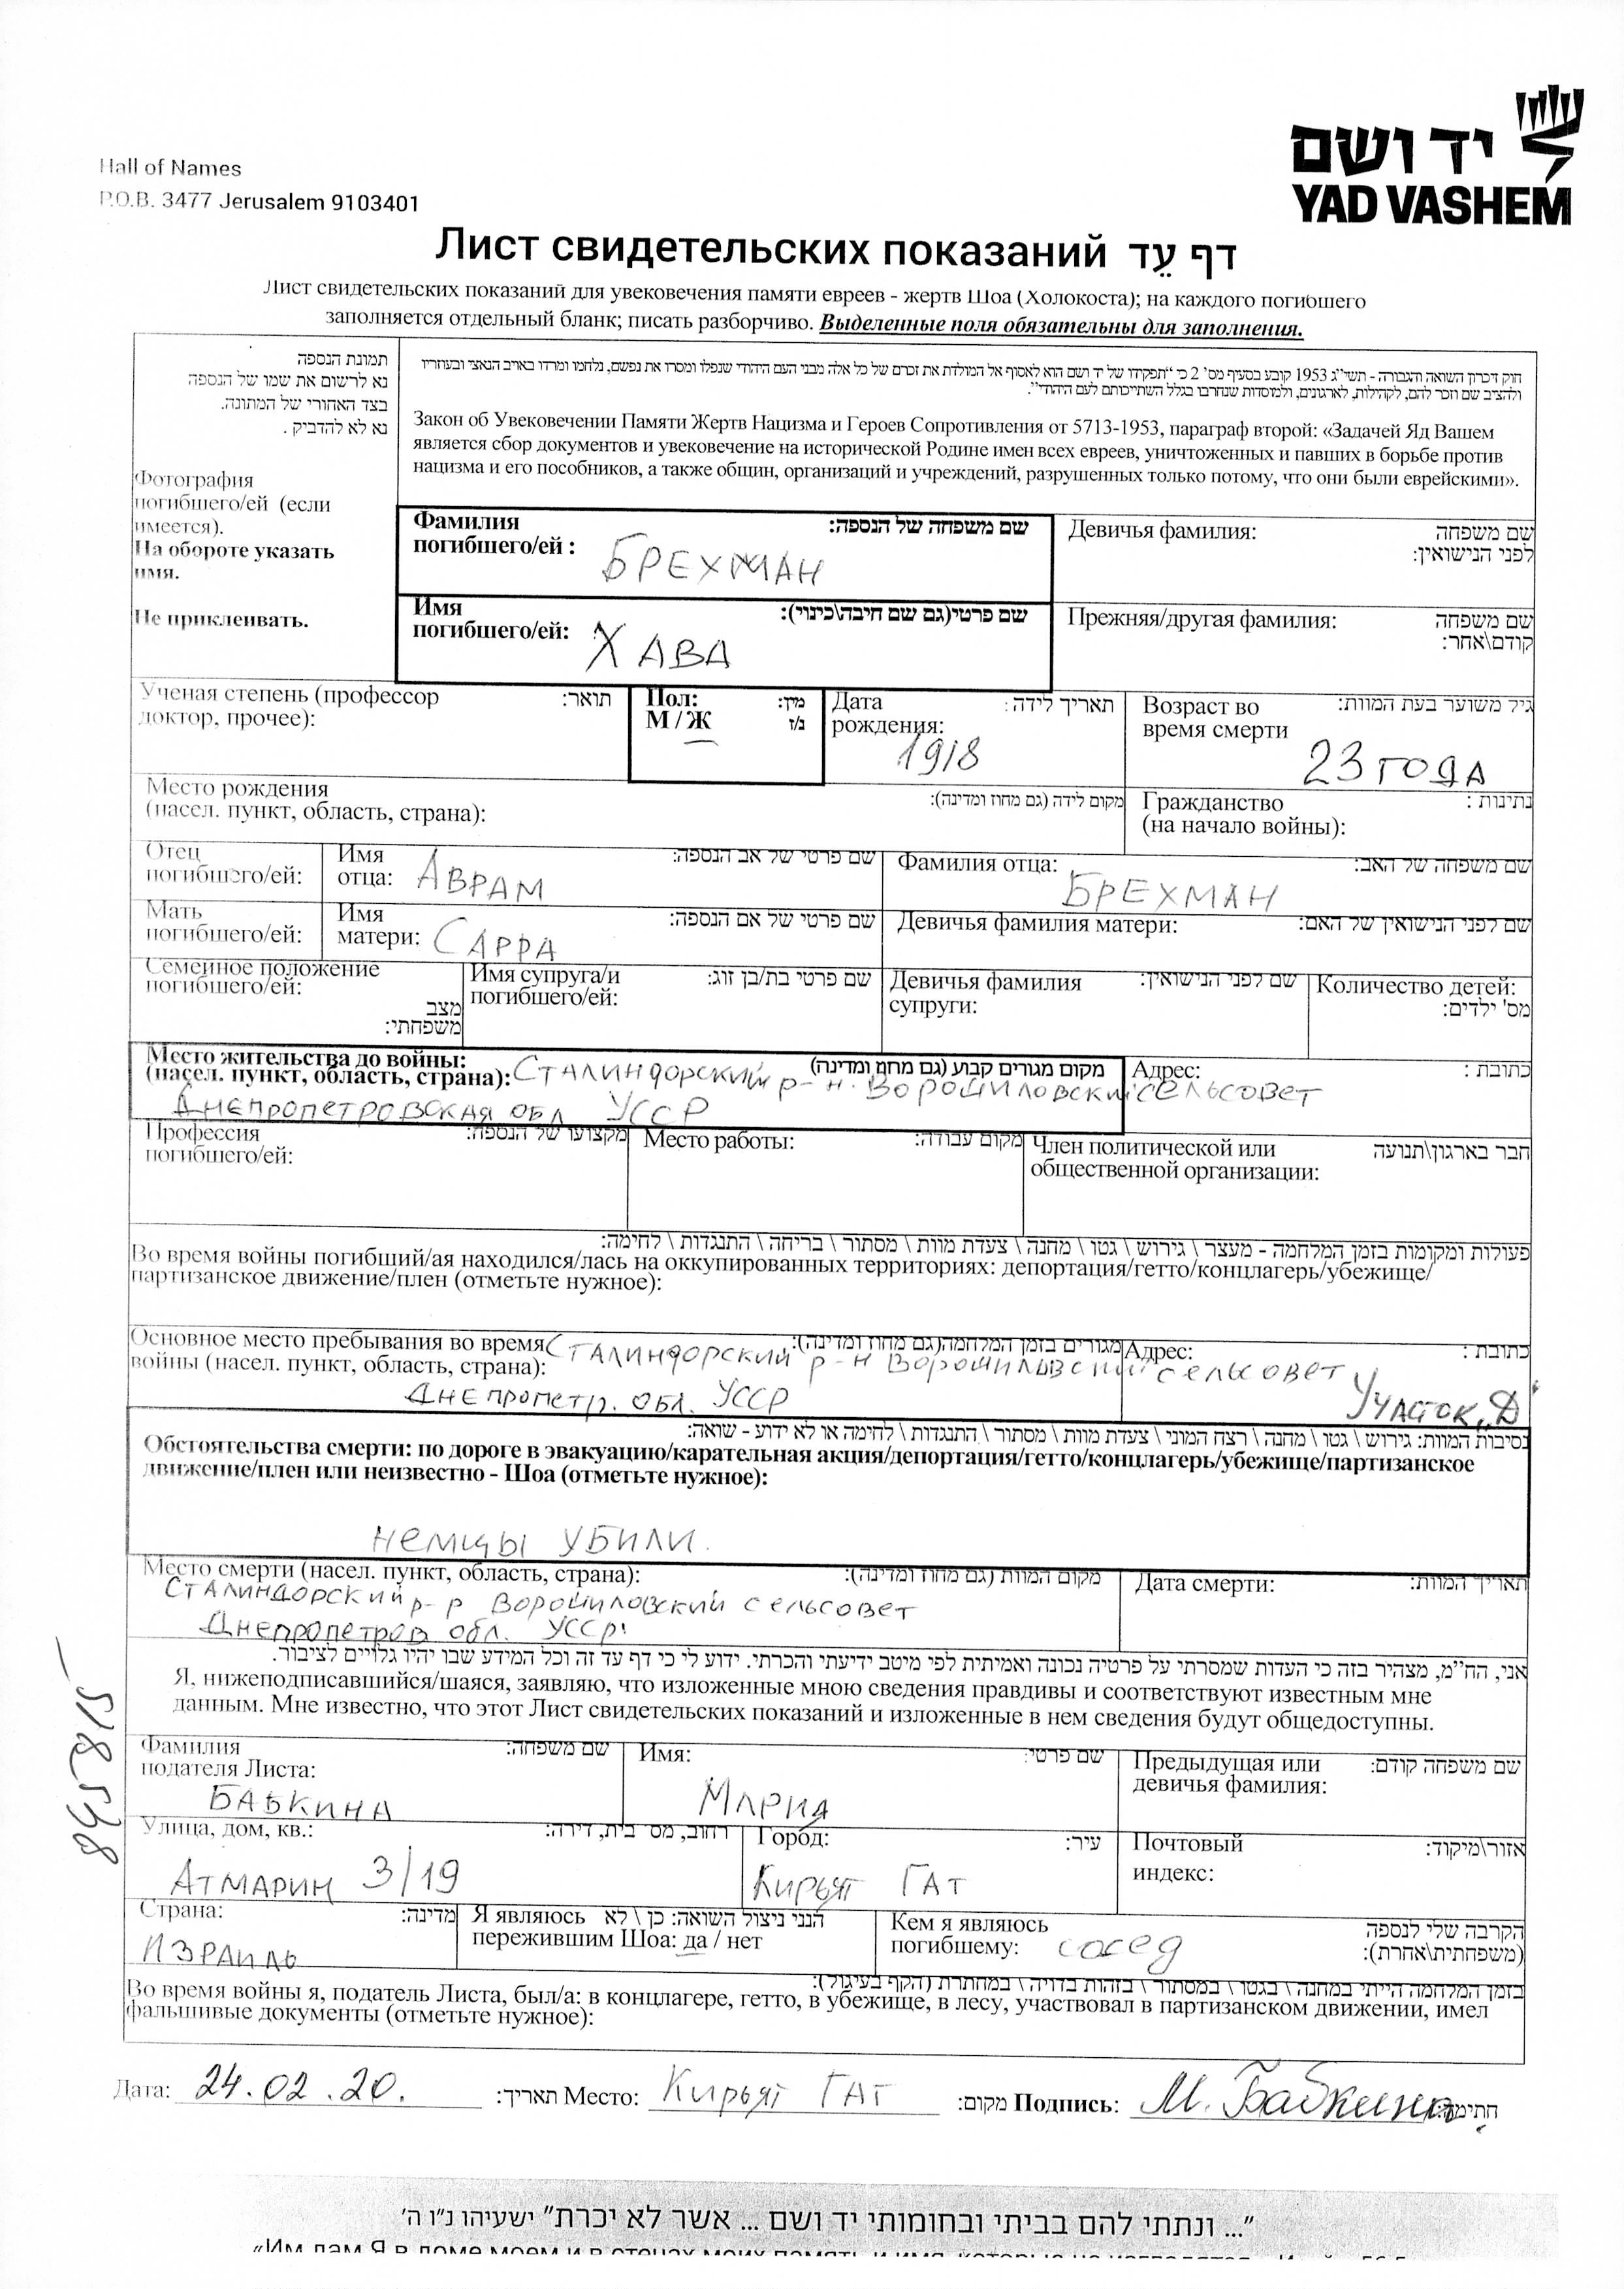 יד ושם
YAD VASHEM
Hall of Names
P.O.B. 3477 Jerusalem 9103401
Лист свидетельских показаний דף עֵד
Лист свидетельских показаний для увековечения памяти евреев - жертв Шоа (Холокоста); на каждого погибшего
заполняется отдельный бланк; писать разборчиво. Выделенные поля обязательны для заполнения.
תמונת הנספה
נא לרשום את שמו של הנספה
בצד האחורי של המתונה.
נא לא להדביק .
Фотография
погибшего/ей (если
имеется).
На обороте указать
имя.
Не приклеивать.
חוק זיכרון השואה והגבורה - תשי"ג 1953 קובע בסעיף מס' 2 כי "תפקידו של יד ושם הוא לאסוף אל המולדת את זכרם של כל אלה מבני העם היהודי שנפלו ומסרו את נפשם, נלחמו ומרדו באויב הנאצי ובעוזריו
ולהציב שם וזכר להם, לקהילות, לארגונים, ולמוסדות שנחרבו בגלל השתייכותם לעם היהודי".
Закон об Увековечении Памяти Жертв Нацизма и Героев Сопротивления от 5713-1953, параграф второй: «Задачей Яд Вашем
является сбор документов и увековечение на исторической Родине имен всех евреев, уничтоженных и павших в борьбе против
нацизма и его пособников, а также общин, организаций и учреждений, разрушенных только потому, что они были еврейскими».
Фамилия שם משפחה של הנספה:
погибшего/ей :
БРЕХМАН
Девичья фамилия: שם משפחה
לפני הנישואין:
Имя שם פרטי(גם שם חיבה\כינוי):
погибшего/ей:
ХАВА
Прежняя/другая фамилия: שם משפחה
קודם\אחר:
Ученая степень (профессор תואר:
доктор, прочее):
Пол: מין:
М / Ж ז/נ
Дата תאריך לידה :
рождения:
1918
Возраст во גיל משוער בעת המוות:
время смерти
23 года
Место рождения
(насел. пункт, область, страна): מקום לידה (גם מחוז ומדינה):
Гражданство נתינות :
(на начало войны):
Отец
погибшего/ей:
Имя שם פרטי של אב הנספה:
отца: АВРАМ
Фамилия отца: שם משפחה של האב:
БРЕХМАН
Мать
погибшего/ей:
Имя שם פרטי של אם הנספה:
матери: САРРА
Девичья фамилия матери: שם לפני הנישואין של האם:
Семейное положение
погибшего/ей:
מצב
משפחתי:
Имя супруга/и שם פרטי בת/בן זוג:
погибшего/ей:
Девичья фамилия שם לפני הנישואין:
супруги:
Количество детей:
מס' ילדים:
Место жительства до войны: מקום מגורים קבוע (גם מחוז ומדינה)
(насел. пункт, область, страна): Сталиндорский р-н. Ворошиловский сельсовет
Днепропетровская обл УССР
Адрес: כתובת :
Профессия מקצועו של הנספה:
погибшего/ей:
Место работы: מקום עבודה:
Член политической или חבר בארגון\תנועה
общественной организации:
פעולות ומקומות בזמן המלחמה - מעצר \ גירוש \ גטו \ מחנה \ צעדת מוות \ מסתור \ בריחה \ התנגדות \ לחימה:
Во время войны погибший/ая находился/лась на оккупированных территориях: депортация/гетто/концлагерь/убежище/
партизанское движение/плен (отметьте нужное):
Основное место пребывания во время מגורים בזמן המלחמה(גם מחוז ומדינה):
войны (насел. пункт, область, страна): Сталиндорский р-н Ворошиловский сельсовет
Днепропетр. обл. УССР
Адрес: כתובת :
Участок „Д
נסיבות המוות: גירוש \ גטו \ מחנה \ רצח המוני \ צעדת מוות \ מסתור \ התנגדות \ לחימה או לא ידוע - שואה:
Обстоятельства смерти: по дороге в эвакуацию/карательная акция/депортация/гетто/концлагерь/убежище/партизанское
движение/плен или неизвестно - Шоа (отметьте нужное):
немцы убили.
Место смерти (насел. пункт, область, страна): מקום המוות (גם מחוז ומדינה):
Сталиндорский р-р Ворошиловский сельсовет
Днепропетров обл. УССР
Дата смерти: תאריך המוות:
אני, הח"מ, מצהיר בזה כי העדות שמסרתי על פרטיה נכונה ואמיתית לפי מיטב ידיעתי והכרתי. ידוע לי כי דף עד זה וכל המידע שבו יהיו גלויים לציבור.
Я, нижеподписавшийся/шаяся, заявляю, что изложенные мною сведения правдивы и соответствуют известным мне
данным. Мне известно, что этот Лист свидетельских показаний и изложенные в нем сведения будут общедоступны.
Фамилия שם משפחה:
подателя Листа:
БАБКИНА
Имя: שם פרטי:
МАРИА
Предыдущая или שם משפחה קודם:
девичья фамилия:
Улица, дом, кв.: רחוב, מס בית, דירה:
Атмарин 3/19
Город: עיר:
Кирьят Гат
Почтовый אזור\מיקוד:
индекс:
Страна: מדינה:
Израиль
Я являюсь הנני ניצול השואה: כן \ לא
пережившим Шоа: да / нет
Кем я являюсь הקרבה שלי לנספה
погибшему: сосед (משפחתית\אחרת):
בזמן המלחמה הייתי במחנה \ בגטו \ במסתור \ בזהות בדויה \ במחתרת (הקף בעיגול):
Во время войны я, податель Листа, был/а: в концлагере, гетто, в убежище, в лесу, участвовал в партизанском движении, имел
фальшивые документы (отметьте нужное):
Дата: 24.02.20. תאריך: Место: Кирьят Гат מקום: Подпись: М. Бабкина חתימה:
"... ונתתי להם בביתי ובחומותי יד ושם ... אשר לא יכרת" ישעיהו נ"ו ה'